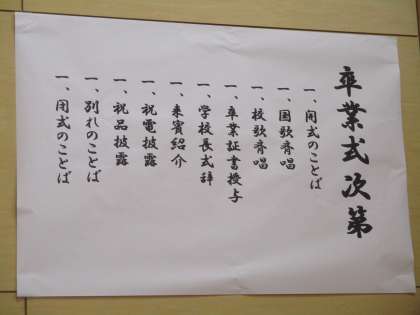 卒業式次第
一、開式のことば
一、国歌斉唱
一、校歌斉唱
一、卒業証書授与
一、学校長式辞
一、来賓紹介
一、祝電披露
一、祝品披露
一、別れのことば
一、閉式のことば